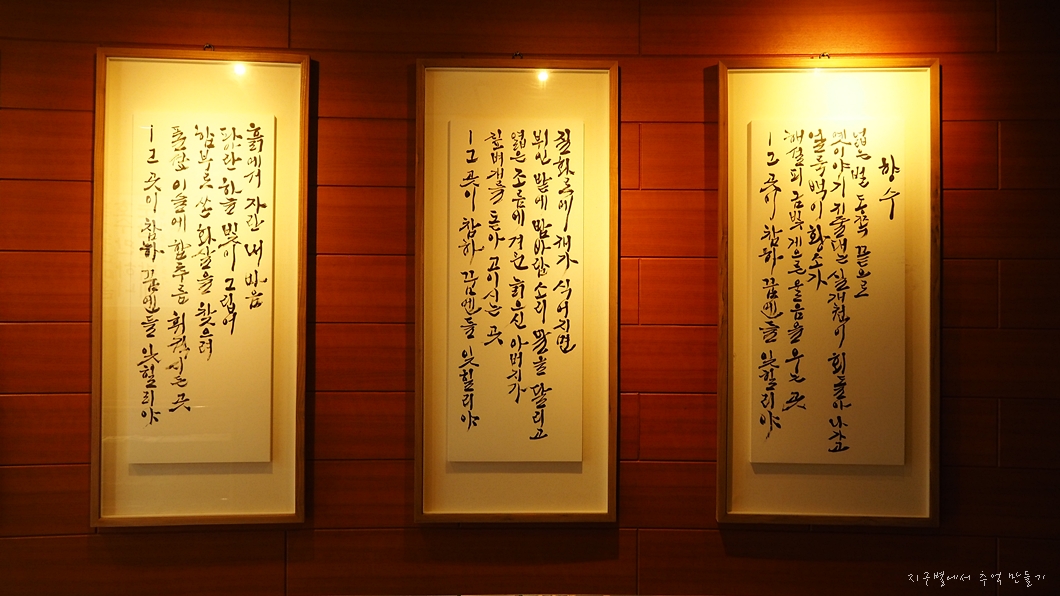 향수
넓은 벌 동쪽 끝으로
옛이야기 지줄대는 실개천이 회돌아 나가고
얼룩백이 황소가
해설피 금빛 게으른 울음을 우는 곳
—그 곳이 참하 꿈엔들 잊힐리야
질화로에 재가 식어지면
뷔인 밭에 밤바람 소리 말을 달리고
엷은 조름에 겨운 늙으신 아버지가
짚벼개를 돋아 고이시는 곳
—그 곳이 참하 꿈엔들 잊힐리야
흙에서 자란 내 마음
파란 하늘 빛이 그립어
함부로 쏜 화살을 찾으려
풀섶 이슬에 함추름 휘적시든 곳
—그 곳이 참하 꿈엔들 잊힐리야
지구별에서 추억 만들기